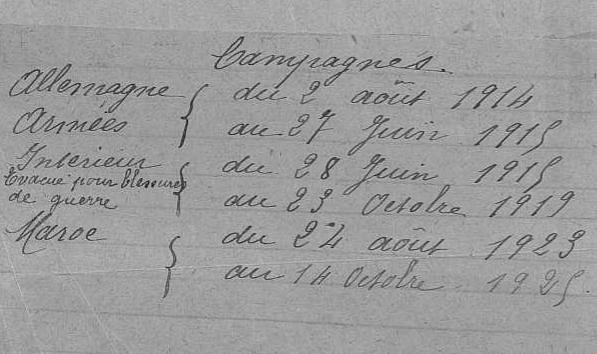 Campagnes.
Allemagne { du 2 août 1914
Armées au 27 Juin 1915
Intérieur { du 28 Juin 1915
Evacué pour blessures
de guerre au 23 Octobre 1919
Maroc { du 24 août 1923
au 14 Octobre 1925.